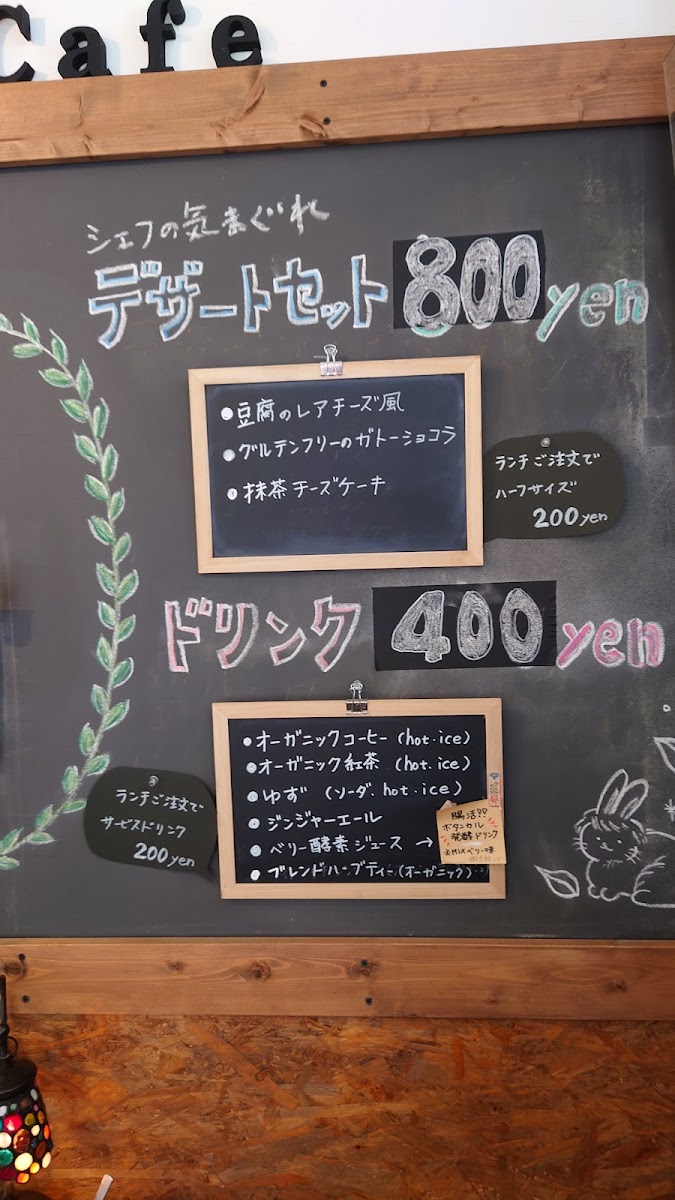 Cafe
シェフの気まぐれ
デザートセット 800yen
●豆腐のレアチーズ風
●グルテンフリーのガトーショコラ
●抹茶チーズケーキ
ランチご注文で
ハーフサイズ
200yen
ドリンク 400yen
●オーガニックコーヒー (hot・ice)
●オーガニック紅茶 (hot・ice)
●ゆず (ソーダ、hot・ice)
●ジンジャーエール
●ベリー酵素ジュース →
●ブレンドハーブティー(オーガニック)
腸活!?
ボタニカル
発酵ドリンク
※MIXベリー味
ランチご注文で
サービスドリンク
200yen